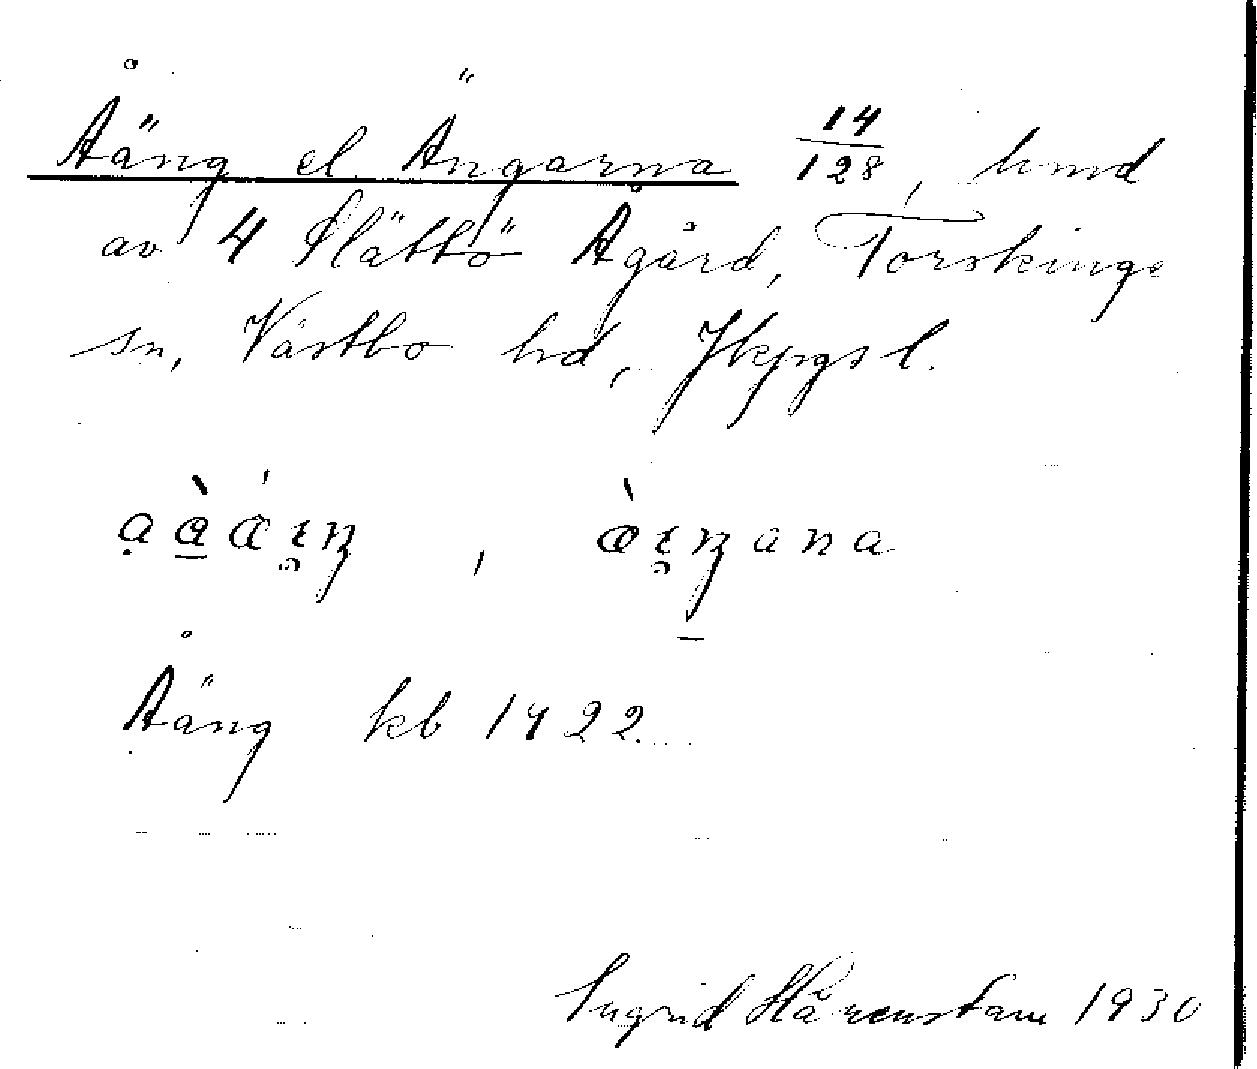 Åäng el. Ängarna 14/128, hmd
av 4 Slättö Ågård, Torskinge
sn, Västbo hd, Jkpgs l.
Åäng kb 1922.
Ingrid Hårenstam 1930